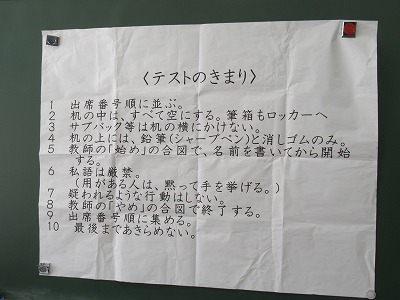 〈テストのきまり〉
1 出席番号順に並ぶ。
2 机の中は、すべて空にする。筆箱もロッカーへ
3 サブバック等は机の横にかけない。
4 机の上には、鉛筆(シャープペン)と消しゴムのみ。
5 教師の「始め」の合図で、名前を書いてから開始
する。
6 私語は厳禁。
(用がある人は、黙って手を挙げる。)
7 疑われるような行動はしない。
8 教師の「やめ」の合図で終了する。
9 出席番号順に集める。
10 最後まであきらめない。